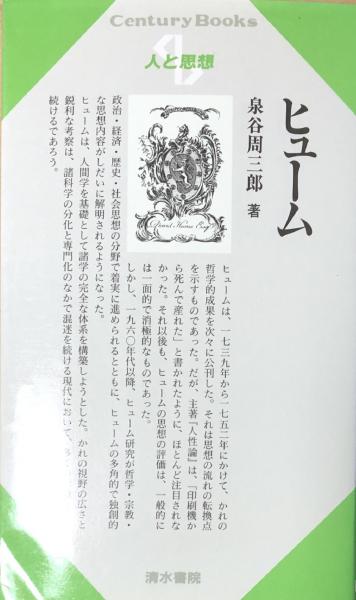 Century Books
人と思想
ヒューム
泉谷周三郎 著
David Hume Esqr.
ヒュームは、一七三九年から一七五二年にかけて、かれの
哲学的成果を次々に公刊した。それは思想の流れの転換点
を示すものであった。だが、主著『人性論』は、「印刷機か
ら死んで産れた」と書かれたように、ほとんど注目されな
かった。それ以後も、ヒュームの思想の評価は、一般的に
は一面的で消極的なものであった。
しかし、一九六〇年代以降、ヒューム研究が哲学・宗教・
政治・経済・歴史・社会思想の分野で着実に進められるとともに、ヒュームの多角的で独創的
な思想内容がしだいに解明されるようになった。
ヒュームは、人間学を基礎として諸学の完全な体系を構築しようとした。かれの視野の広さと
鋭利な考察は、諸科学の分化と専門化のなかで混迷を続ける現代において、
続けるであろう。
清水書院